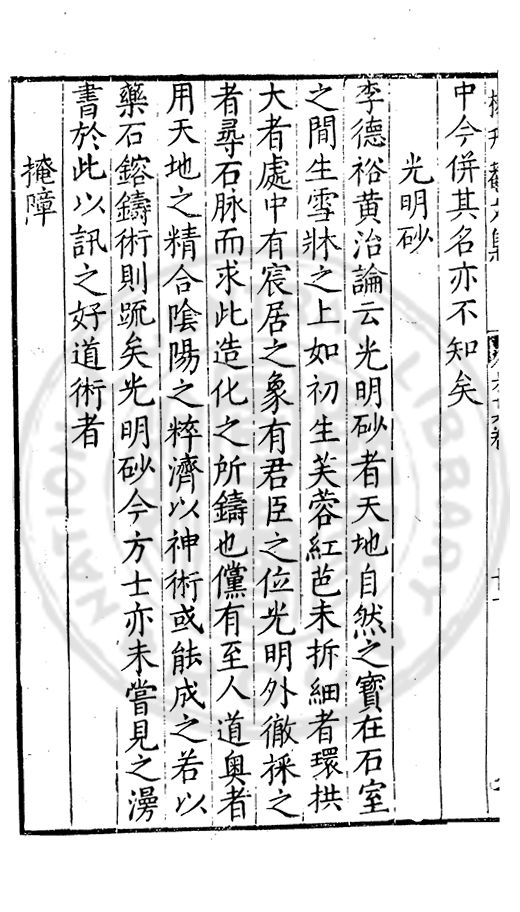 中今併其名亦不知矣
光明砂
李德裕黄治論云光明砂者天地自然之寶在石室
之間生雪牀之上如初生芙蓉紅芭未拆細者環拱
大者處中有宸居之象有君臣之位光明外徹採之
者尋石脉而求此造化之所鑄也儻有至人道奥者
用天地之精合陰陽之粹濟以神術或能成之若以
藥石鎔鑄術則疏矣光明砂今方士亦未嘗見之漫
書於此以訊之好道術者
掩障
NATIONAL LIBRARY